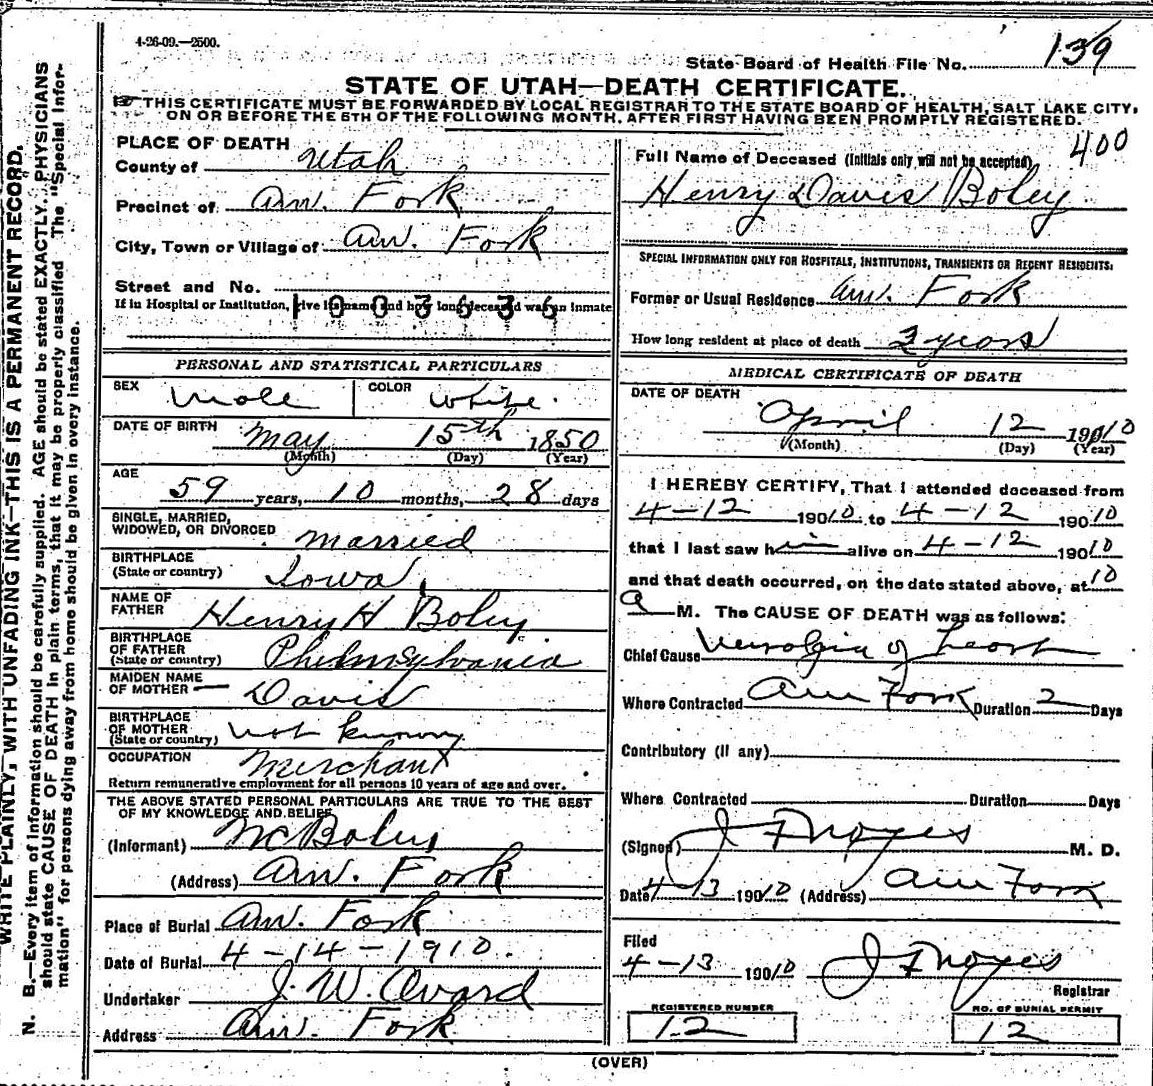 4-26-09.—2500.
State Board of Health File No. 139
STATE OF UTAH—DEATH CERTIFICATE.
THIS CERTIFICATE MUST BE FORWARDED BY LOCAL REGISTRAR TO THE STATE BOARD OF HEALTH, SALT LAKE CITY,
ON OR BEFORE THE 5TH OF THE FOLLOWING MONTH, AFTER FIRST HAVING BEEN PROMPTLY REGISTERED.
400
PLACE OF DEATH
County of Utah
Precinct of Am. Fork
City, Town or Village of Am. Fork
Street and No.
If in Hospital or Institution, give its name and how long deceased was an inmate
1003636
Full Name of Deceased (Initials only will not be accepted)
Henry Davis Boley
SPECIAL INFORMATION ONLY FOR HOSPITALS, INSTITUTIONS, TRANSIENTS OR RECENT RESIDENTS:
Former or Usual Residence Am. Fork
How long resident at place of death years
PERSONAL AND STATISTICAL PARTICULARS
SEX Male COLOR White.
DATE OF BIRTH May 15th 1850
(Month) (Day) (Year)
AGE
59 years, 10 months, 28 days
SINGLE, MARRIED,
WIDOWED, OR DIVORCED married
BIRTHPLACE
(State or country) Iowa
NAME OF
FATHER Henry H Boley
BIRTHPLACE
OF FATHER
(State or country)
MAIDEN NAME
OF MOTHER Davis
BIRTHPLACE
OF MOTHER
(State or country) not known
OCCUPATION Merchant
Return remunerative employment for all persons 10 years of age and over.
THE ABOVE STATED PERSONAL PARTICULARS ARE TRUE TO THE BEST
OF MY KNOWLEDGE AND BELIEF
(Informant) Boley
(Address) Am. Fork
Place of Burial Am. Fork
Date of Burial 4-14-1910.
Undertaker J. W. Avard
Address Am. Fork
MEDICAL CERTIFICATE OF DEATH
DATE OF DEATH
April 12 1910
(Month) (Day) (Year)
I HEREBY CERTIFY, That I attended deceased from
4-12 19010 to 4-12 19010
that I last saw him alive on 4-12 19010
and that death occurred, on the date stated above, at 10
a M. The CAUSE OF DEATH was as follows:
Chief Cause Neuralgia of heart
Where Contracted Am Fork Duration 2 Days
Contributory (if any)
Where Contracted Duration Days
(Signed) J F Noyes M. D.
Date 4-13 19010 (Address) Am Fork
Filed
4-13 19010 J F Noyes
Registrar
REGISTERED NUMBER
12
NO. OF BURIAL PERMIT
12
(OVER)
WRITE PLAINLY, WITH UNFADING INK—THIS IS A PERMANENT RECORD.
N. B.—Every item of information should be carefully supplied. AGE should be stated EXACTLY. PHYSICIANS
should state CAUSE OF DEATH in plain terms, that it may be properly classified. The "Special Infor-
mation" for persons dying away from home should be given in every instance.